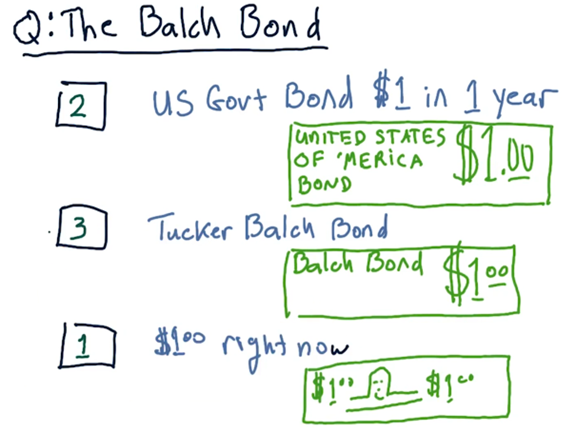 Q: The Balch Bond
2 US Govt Bond $1 in 1 year
UNITED STATES
OF 'MERICA
BOND
$1.00
3 Tucker Balch Bond
Balch Bond $1 00
1 $1 00 right now
$1 00 $1 00